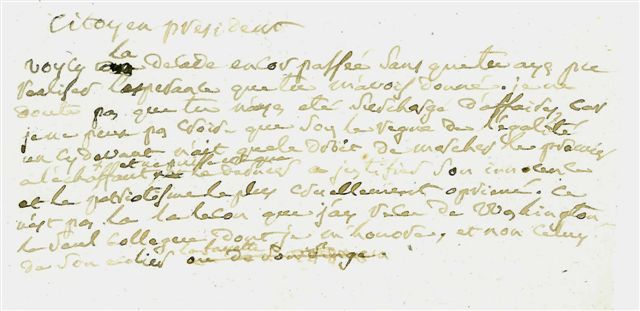 Citoyen president
voycy la decade encor passée sans que tu ays pu
realiser l'esperance que tu m'avois donné. je ne
doute pas que tu n'ayes eté surchargé d'affaires, car
je ne peux pas croire que sous le regne de l'egalité
un cydevant n'ait que le droit de marcher le premier
a l'echaffaut et ne puisse être que le dernier a justifier son innocence
et le patriotisme le plus cruellement oprimé. ce
n'est pas la la lecon que j'ay recu de Washington
le seul collegue dont je m'honore, et non celuy
de son